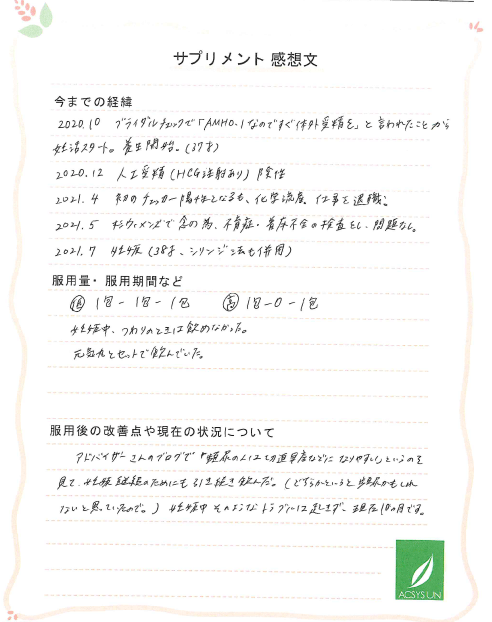 サプリメント 感想文
今までの経緯
2020.10 ブライダルチェックで「AMH0.1なのですぐ体外受精を」と言われたことから
妊活スタート。養生開始。(37才)
2020.12 人工受精(HCG注射あり)陰性
2021.4 初のチェッカー陽性となるも、化学流産。仕事を退職。
2021.5 杉ウィメンズで念の為、不育症・着床不全の検査をし、問題なし。
2021.7 妊娠(38才、シリンジ法も併用)
服用量・服用期間など
1包-1包-1包 1包-0-1包
妊娠中、つわりのときは飲めなかった。
とセットで飲んでいた。
服用後の改善点や現在の状況について
アドバイザーさんのブログで「頻尿の人は切迫早産などになりやすい」というのを
見て、妊娠継続のためにも引き続き飲んだ。(どちらかというと頻尿かもしれ
ないと思っていたので。) 妊娠中そのようなトラブルは起きず、現在10ヵ月です。
ACSYSUN